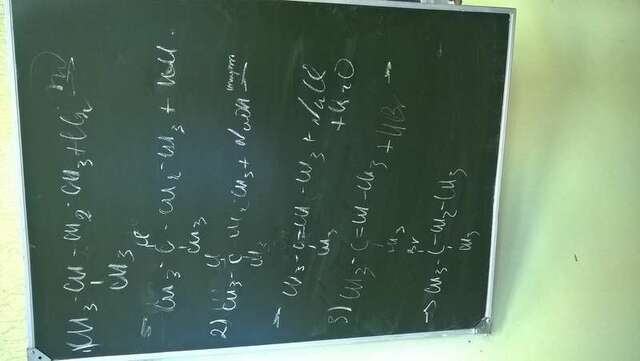 1) CH3-CH-CH2-CH3+Cl2 hν→
CH3
Cl
→ CH3-C-CH2-CH3 + HCl.
CH3
2) Cl
CH3-C CH2-CH3+NaOH спирт →
CH3
→ CH3-C=CH-CH3+NaCl
CH3 +H2O
3) CH3-C=CH-CH3+HBr →
CH3
Br
→ CH3-C-CH2-CH3
CH3